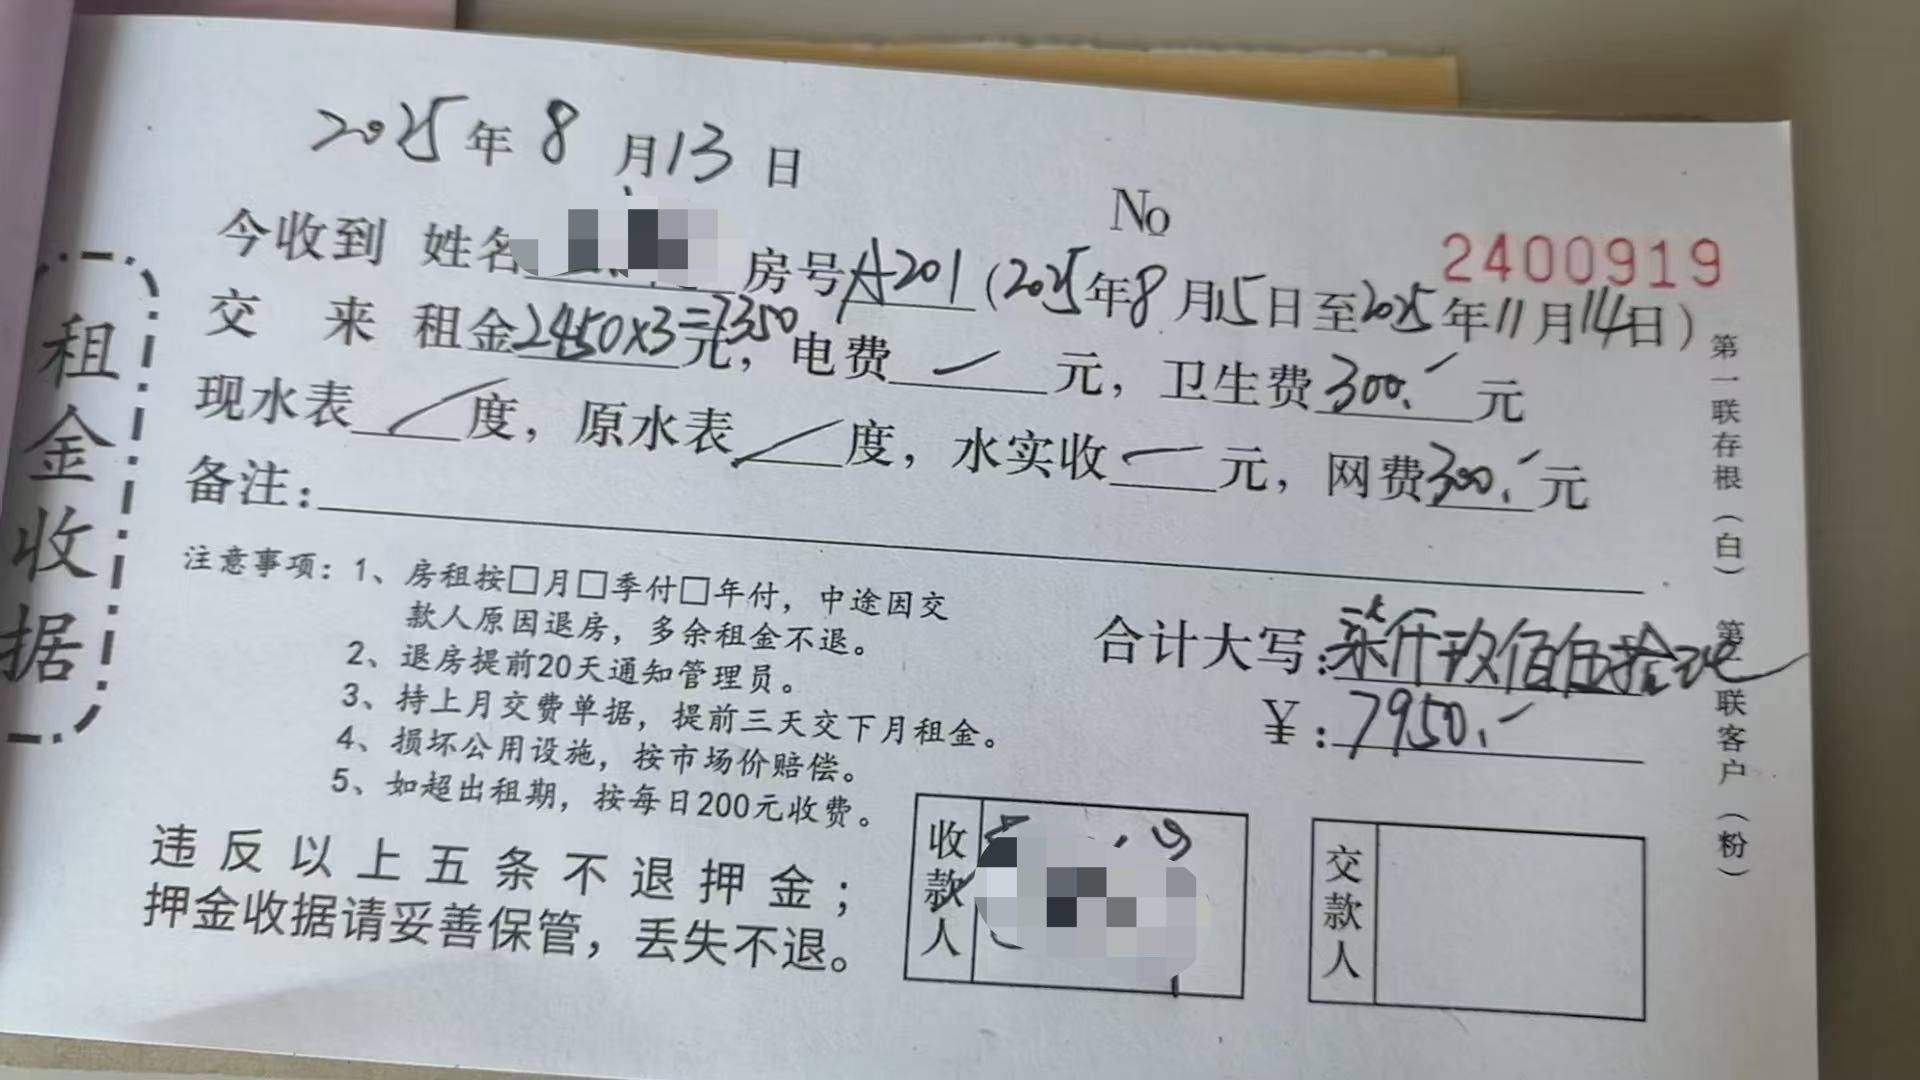 租金收据
2025年8月13日
No
2400919
今收到 姓名 房号A201(2025年8月15日至2025年11月14日)
交来 租金2450×3=7350元,电费—元,卫生费300.-元
现水表/度,原水表/度,水实收—元,网费300.-元
备注:
注意事项:1、房租按□月□季付□年付,中途因交
款人原因退房,多余租金不退。
2、退房提前20天通知管理员。
3、持上月交费单据,提前三天交下月租金。
4、损坏公用设施,按市场价赔偿。
5、如超出租期,按每日200元收费。
合计大写:柒仟玖佰伍拾元
¥:7950.-
违反以上五条不退押金;
押金收据请妥善保管,丢失不退。
收款人
交款人
第一联存根(白) 第 联客户(粉)